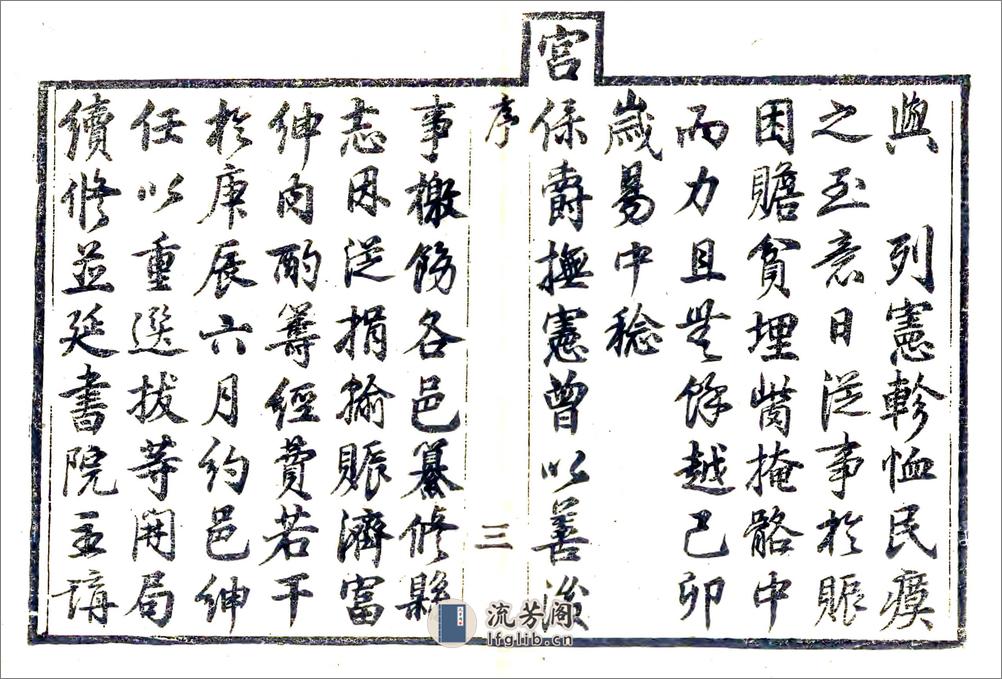 與 列憲軫恤民瘼
之至意日從事於賑
困贍貧埋胔掩骼中
而力且無餘越己卯
歲昜中稔
宮
保爵撫憲曾以善後
序
三
事檄飭各邑纂修縣
志因從捐輸賑濟富
紳內酌籌經費若干
於庚辰六月約邑紳
任以重選拔等開局
續修並延書院主講
流芳阁
lfglib.cn